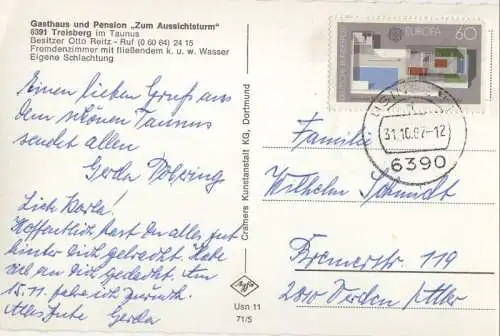 Gasthaus und Pension „Zum Aussichtsturm"
6391 Treisberg im Taunus
Besitzer Otto Reitz - Ruf (0 60 64) 24 15
Fremdenzimmer mit fließendem k. u. w. Wasser
Eigene Schlachtung
Einen lieben Gruß aus
dem schönen Taunus
sendet allen
Gerda Döhring
Lieb Karla!
Hoffentlich hast Du alles gut
hinter Dich gebracht. Habe
viel an Dich gedacht. Am
15.11. fahre ich zurück.
Alles Gute Gerda
Cramers Kunstanstalt KG, Dortmund
Agfa
Usn 11
71/5
DEUTSCHE BUNDESPOST
EUROPA 60
31.10.87-12
6390
Familie
Wilhelm Schmidt
Bremerstr. 119
2810 Verden /Aller